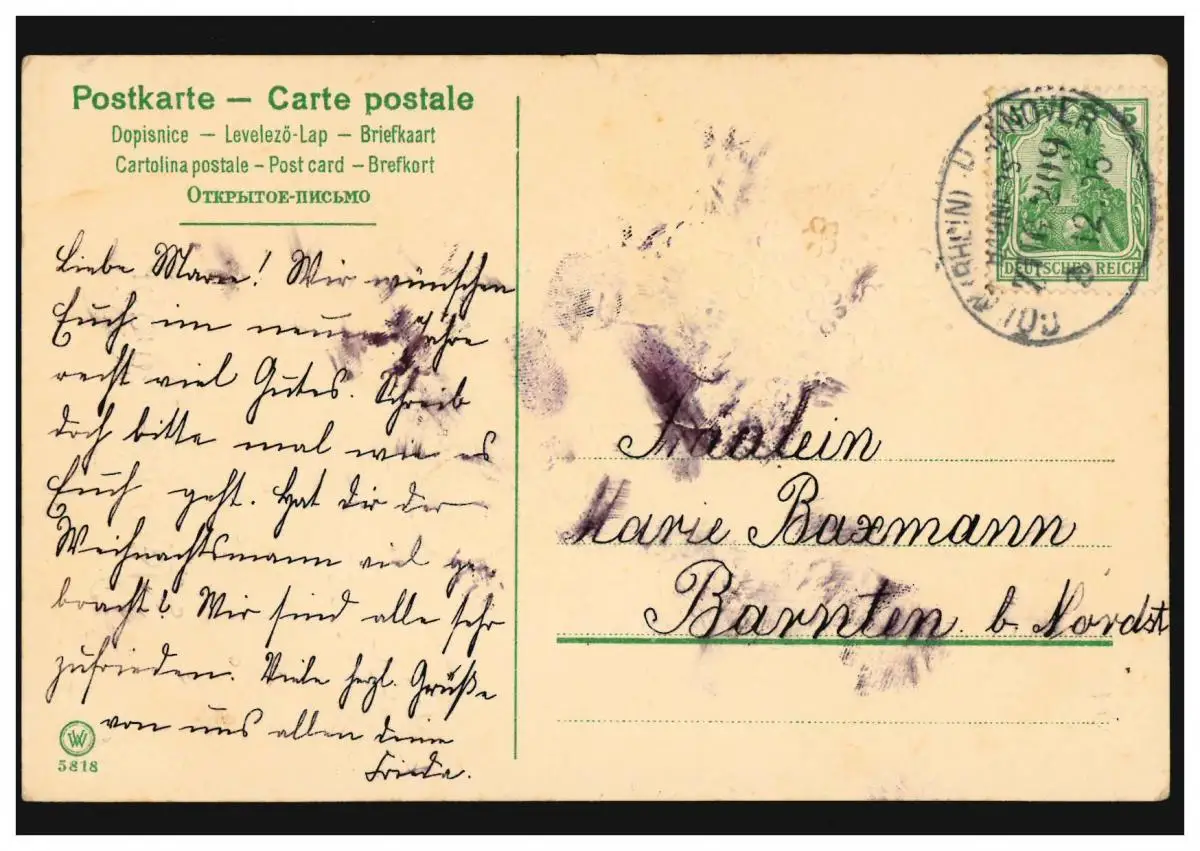 Postkarte — Carte postale
Dopisnice — Levelező-Lap — Briefkaart
Cartolina postale – Post card – Brefkort
Открытое-письмо
Liebe Marie! Wir wünschen
Euch im neuen Jahre
recht viel Gutes. Schreib
doch bitte mal wie es
Euch geht. Hat dir der
Weihnachtsmann viel ge-
bracht? Wir sind alle sehr
zufrieden. Viele herzl. Grüße
von uns allen deine
Frieda.
W
5818
5
DEUTSCHES REICH
CÖLN (RHEIN)
BAHNPOST
ZUG 209
Fräulein
Marie Baxmann
Barnten b. Nordst